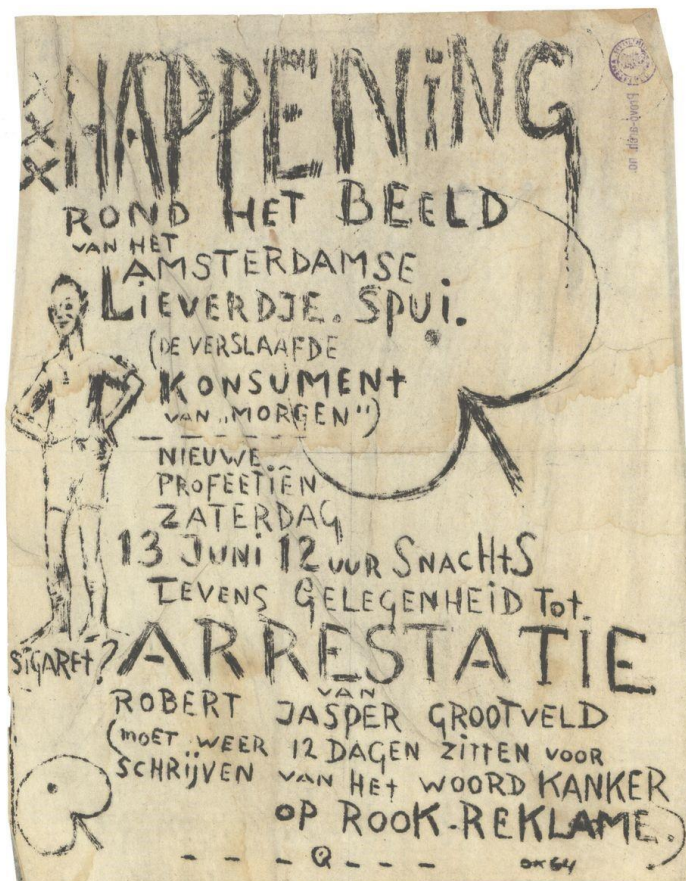 XXX HAPPENING
ROND HET BEELD
VAN HET
AMSTERDAMSE
LIEVERDJE. SPUI.
(DE VERSLAAFDE
KONSUMENT
VAN „MORGEN")
NIEUWE
PROFEETIËN
ZATERDAG
13 JUNI 12 UUR SNACHtS
TEVENS GELEGENHEID Tot.
SIGAREt? ARRESTATIE
VAN
ROBERT JASPER GROOTVELD
(MOET WEER 12 DAGEN ZITTEN VOOR
SCHRIJVEN VAN HEt WOORD KANKER
OP ROOK-REKLAME.)
OK 64